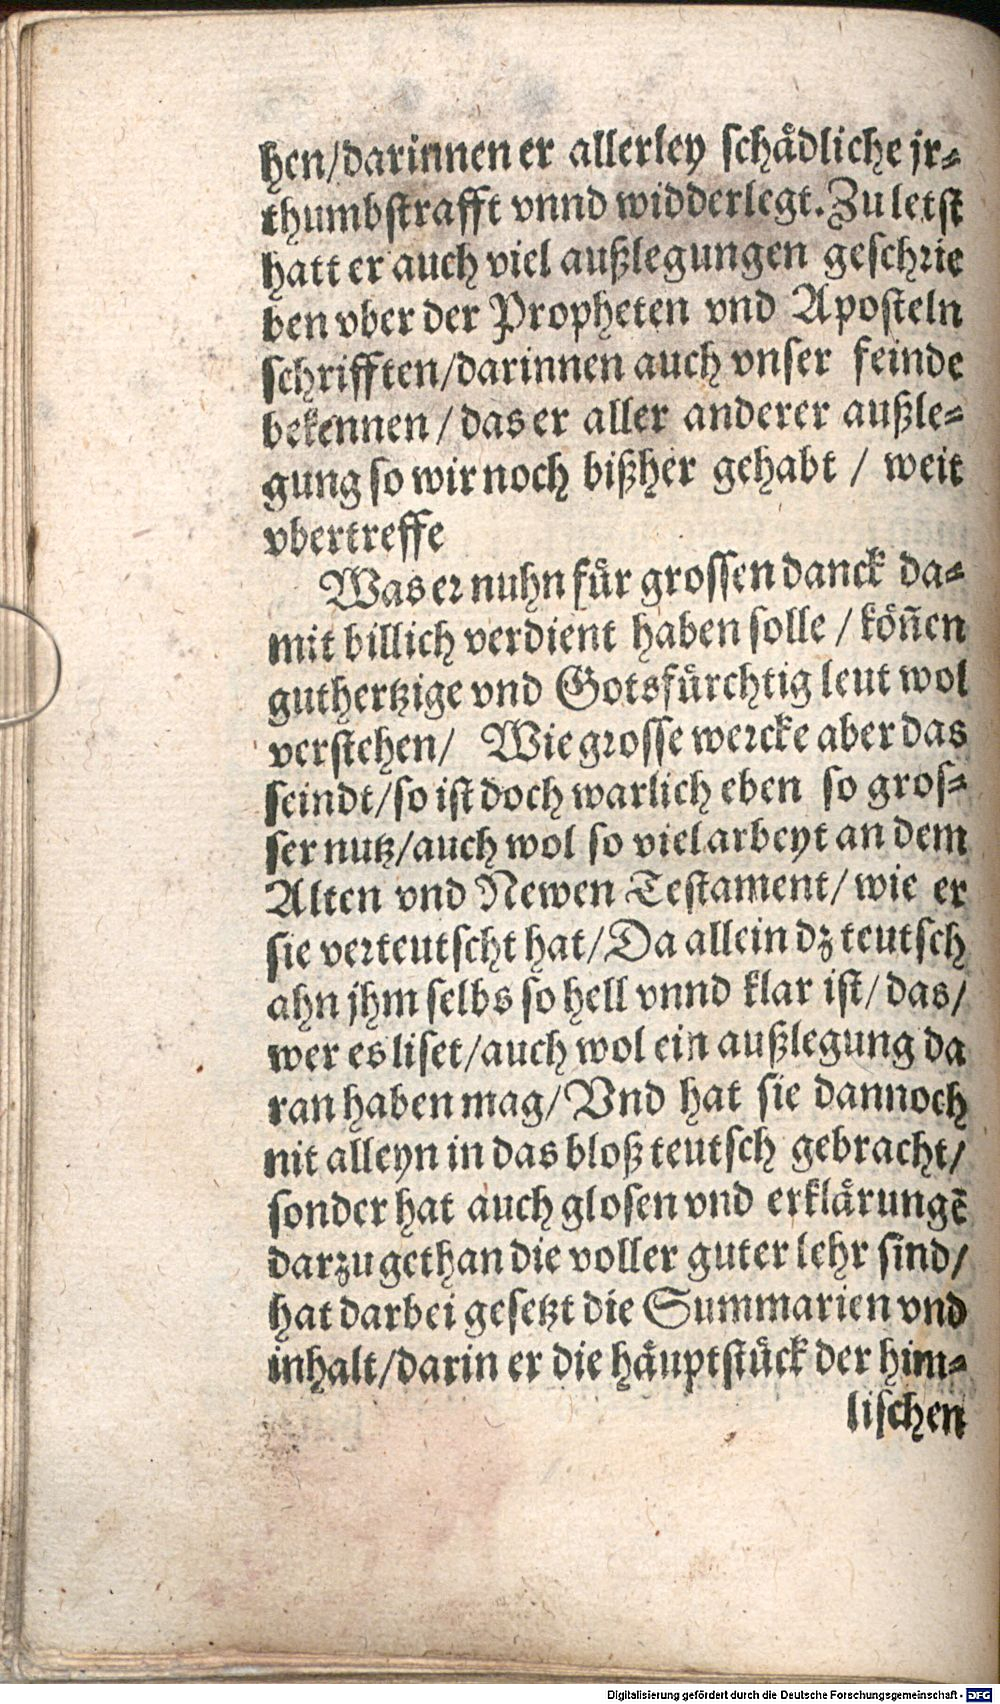 hen/darinnen er allerley schaͤdliche jr⸗
thumb strafft vnnd widderlegt. Zu letst
hatt er auch viel außlegungen geschrie
ben vber der Propheten vnd Aposteln
schrifften/darinnen auch vnser feinde
bekennen/das er aller anderer außle⸗
gung so wir noch bißher gehabt / weit
vbertreffe
Was er nuhn fuͤr grossen danck da⸗
mit billich verdient haben solle / koͤn̄en
guthertzige vnd Gotsfuͤrchtig leut wol
verstehen/ Wie grosse wercke aber das
seindt/so ist doch warlich eben so gros⸗
ser nutz/auch wol so viel arbeyt an dem
Alten vnd Newen Testament/wie er
sie verteutscht hat/Da allein dz teutsch
ahn jhm selbs so hell vnnd klar ist/das/
wer es liset/auch wol ein außlegung da
ran haben mag/Vnd hat sie dannoch
nit alleyn in das bloß teutsch gebracht/
sonder hat auch glosen vnd erklaͤrungē
darzu gethan die voller guter lehr sind/
hat darbei gesetzt die Summarien vnd
inhalt/darin er die haͤuptstuͤck der him⸗
lischen
Digitalisierung gefördert durch die Deutsche Forschungsgemeinschaft - DFG